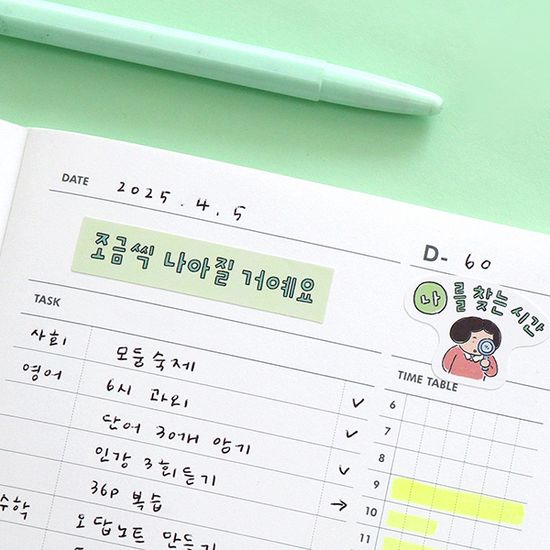 DATE 2025.4.5
D- 60
조금씩 나아질 거예요
나를 찾는 시간
TASK
TIME TABLE
사회 모둠숙제
영어 6시 과외 ✓
단어 30개 암기 ✓
인강 3회듣기 ✓
36p 복습 →
수학 오답노트 만들기
6
7
8
9
10
11